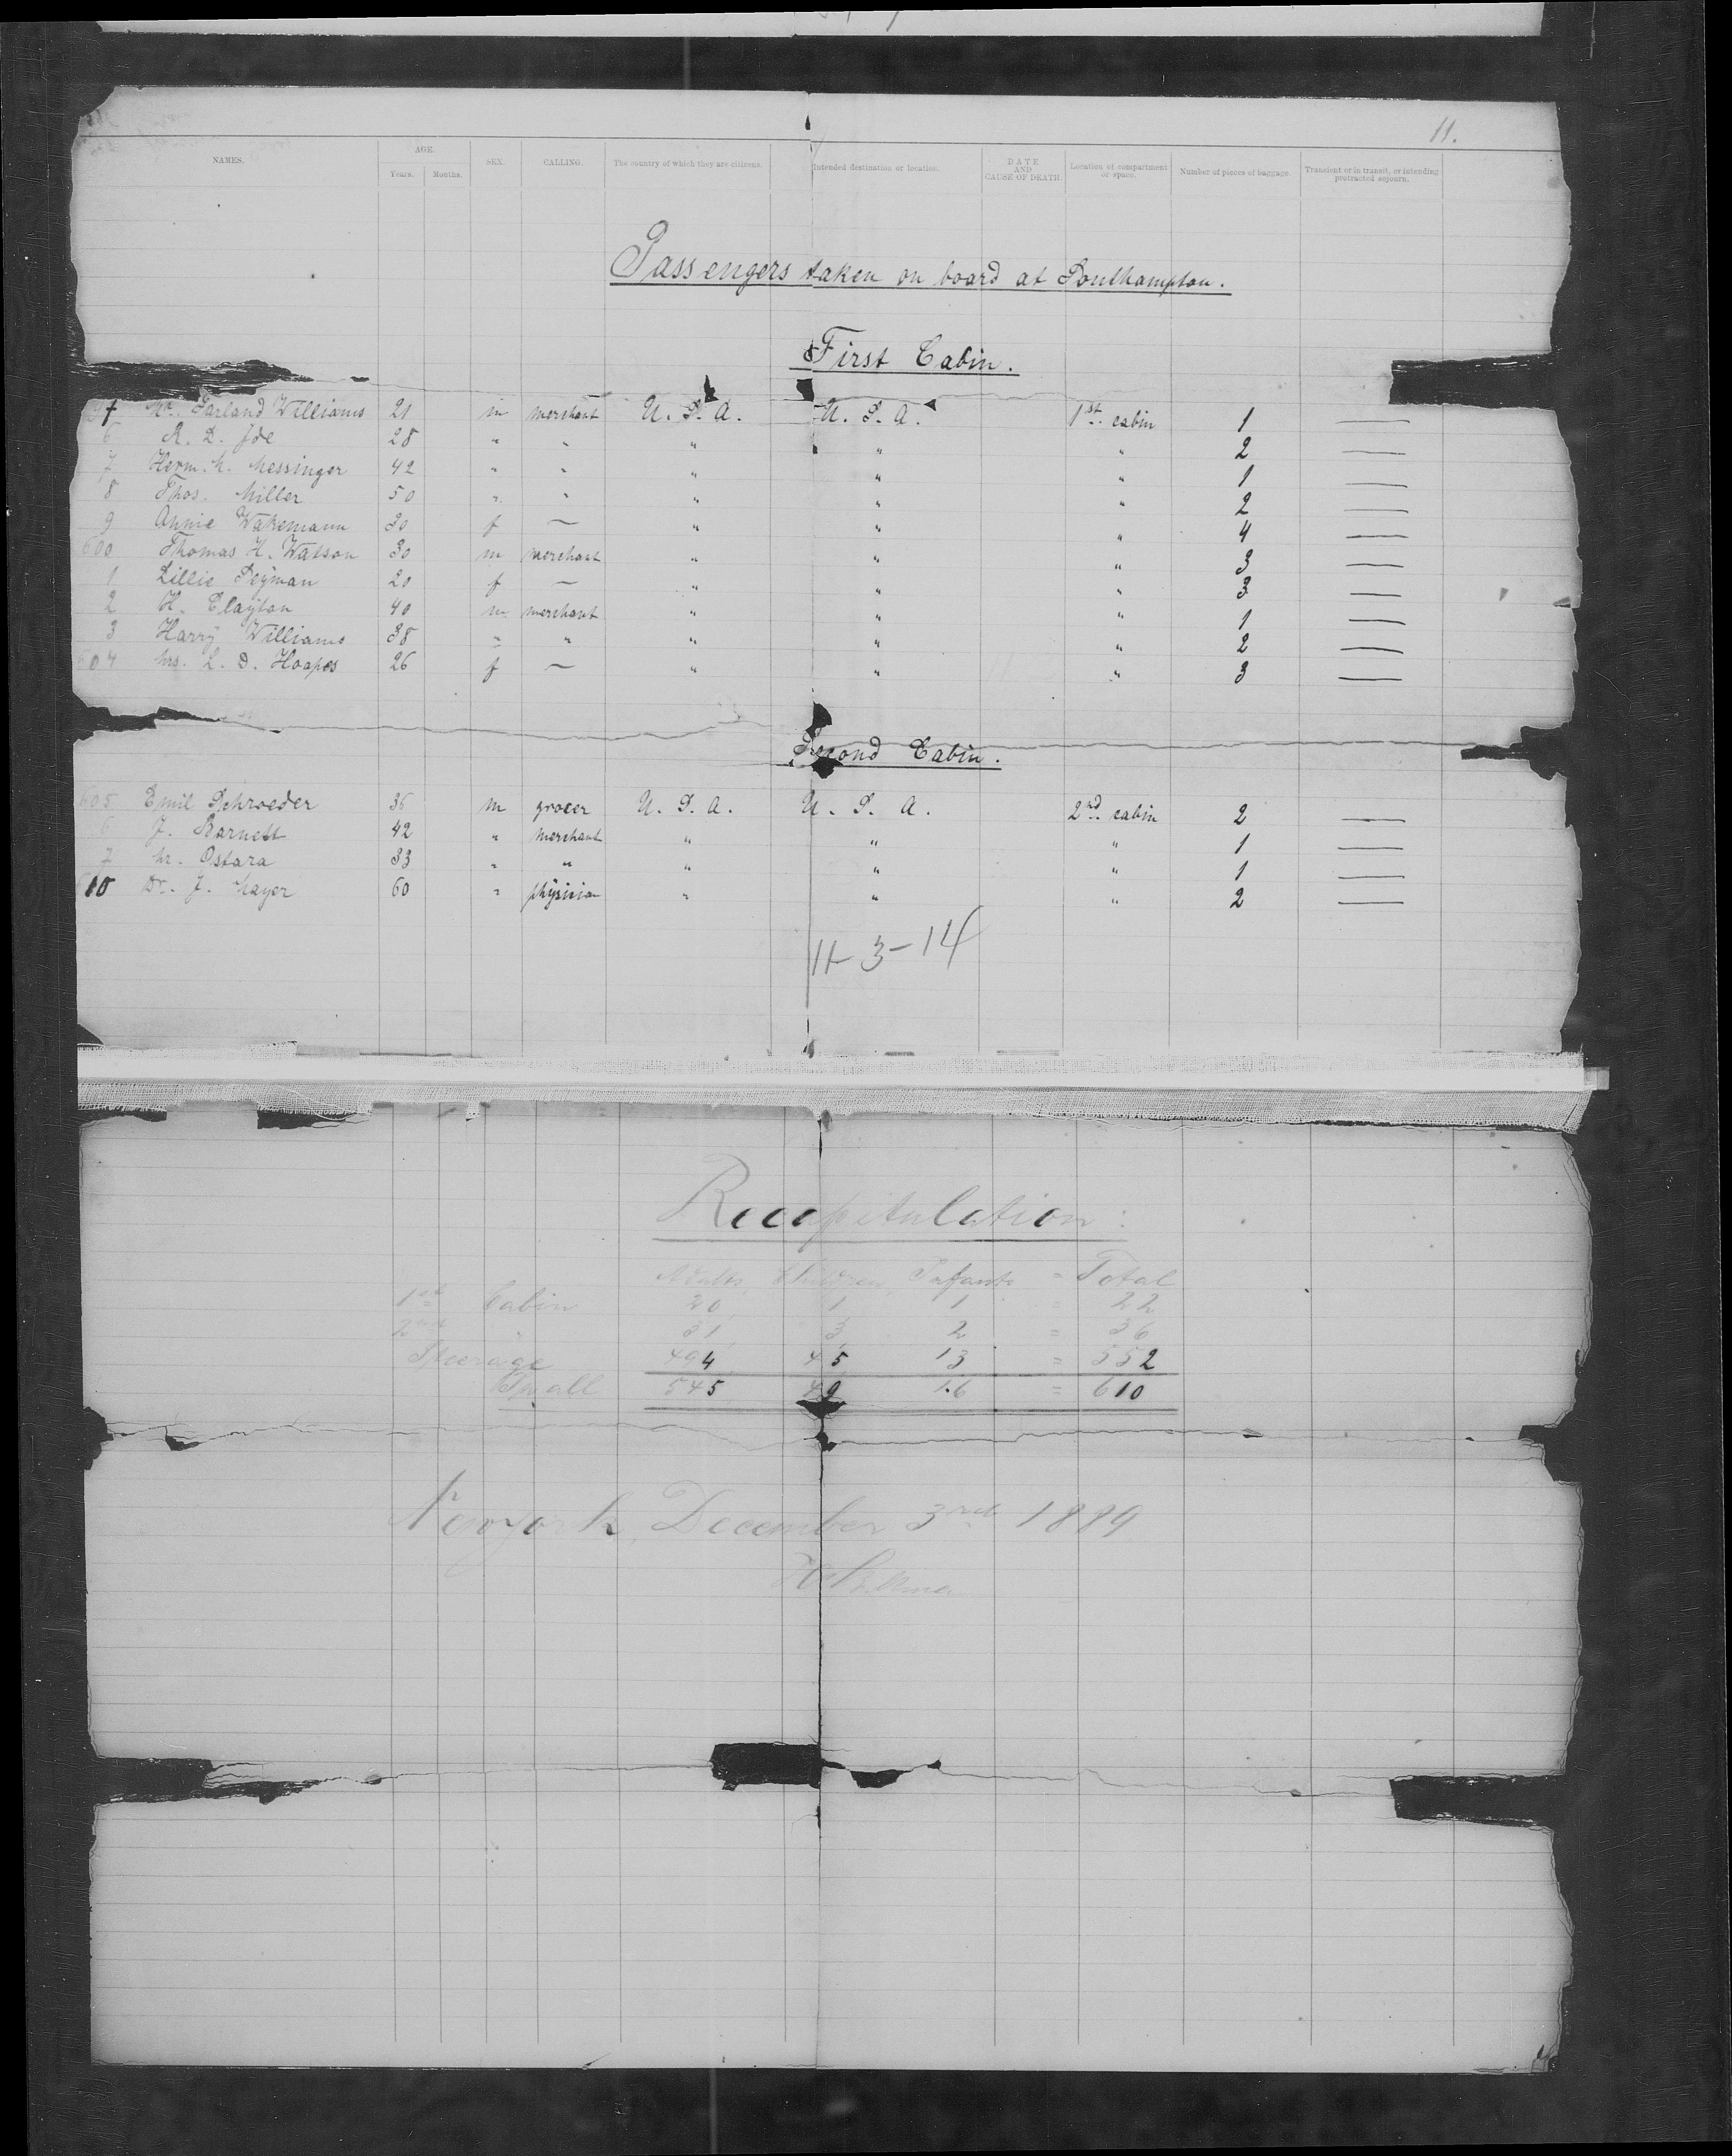 11.
NAMES. AGE. Years. Months. SEX. CALLING. The country of which they are citizens. Intended destination or location. DATE AND CAUSE OF DEATH. Location of compartment or space. Number of pieces of baggage. Transient or in transit, or intending protracted sojourn.
Passengers taken on board at Southampton.
First Cabin.
Garland Williams 21 m merchant U. S. A. U. S. A. 1st. cabin 1 —
6 A. D. Ide 28 " " " " " 2 —
7 Herm. M. Messinger 42 " " " " " 1 —
8 Thos. Miller 50 " " " " " 2 —
9 Annie Wakemann 30 f — " " " 4 —
600 Thomas H. Watson 30 m merchant " " " 3 —
1 Lillie Seyman 20 f — " " " 3 —
2 H. Clayton 40 m merchant " " " 1 —
3 Harry Williams 38 " " " " " 2 —
604 Mrs. L. D. Hoapes 26 f — " " " 3 —
Second Cabin.
605 Emil Schroeder 36 m grocer U. S. A. U. S. A. 2nd. cabin 2 —
6 J. Barnett 42 " merchant " " " 1 —
7 M. Ostara 33 " " " " " 1 —
610 Dr. J. Mayer 60 " physician " " " 2 —
11-3-14
Recapitulation:
Adults, Children, Infants = Total
1st Cabin 20 1 1 = 22
2nd " 31 3 2 = 36
Steerage 494 45 13 = 552
In all 545 49 16 = 610
Newyork, December 3rd 1889